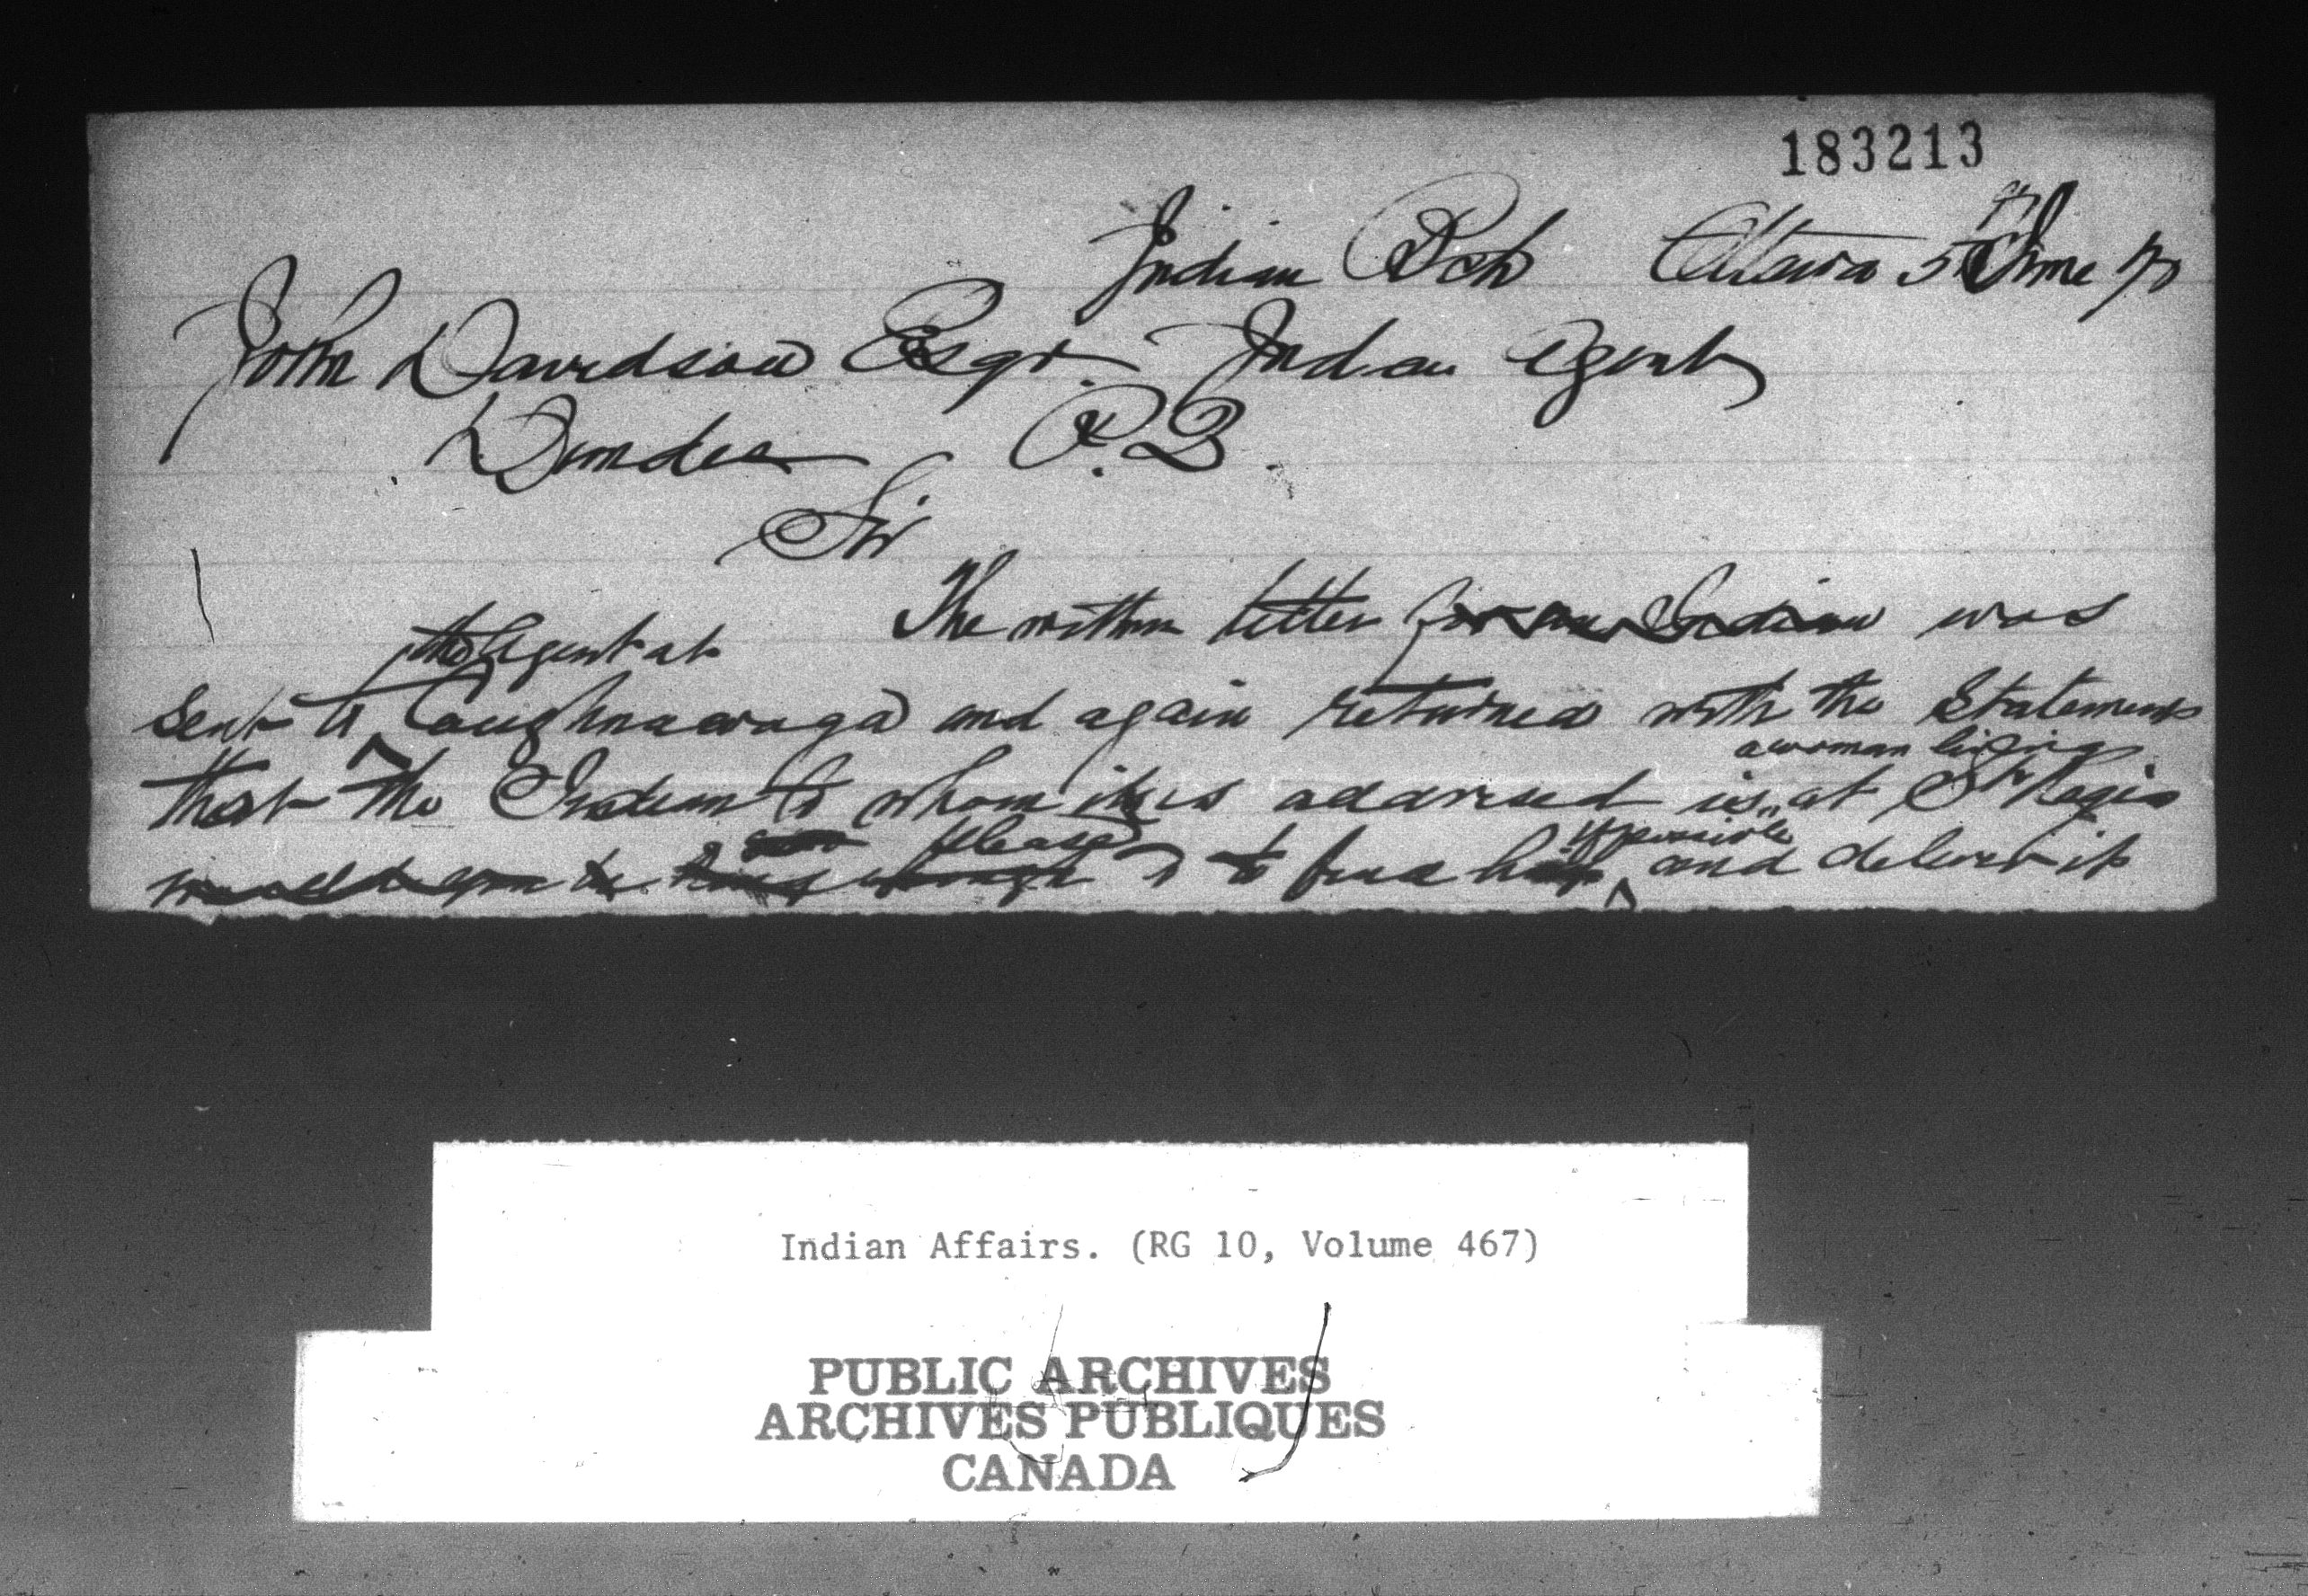 183213
Indian Bch Ottawa 5th June 70
John Davidson Esqr. Indian Agent
Dundee P.Q.
Sir
The within letter for an Indian was
the Agent at
sent to Caughnawaga and again returned with the Statement
a woman living
that the Indian to whom it is addressed is at St Regis
please if possible
would you be to find and deliver it
Indian Affairs. (RG 10, Volume 467)
PUBLIC ARCHIVES
ARCHIVES PUBLIQUES
CANADA